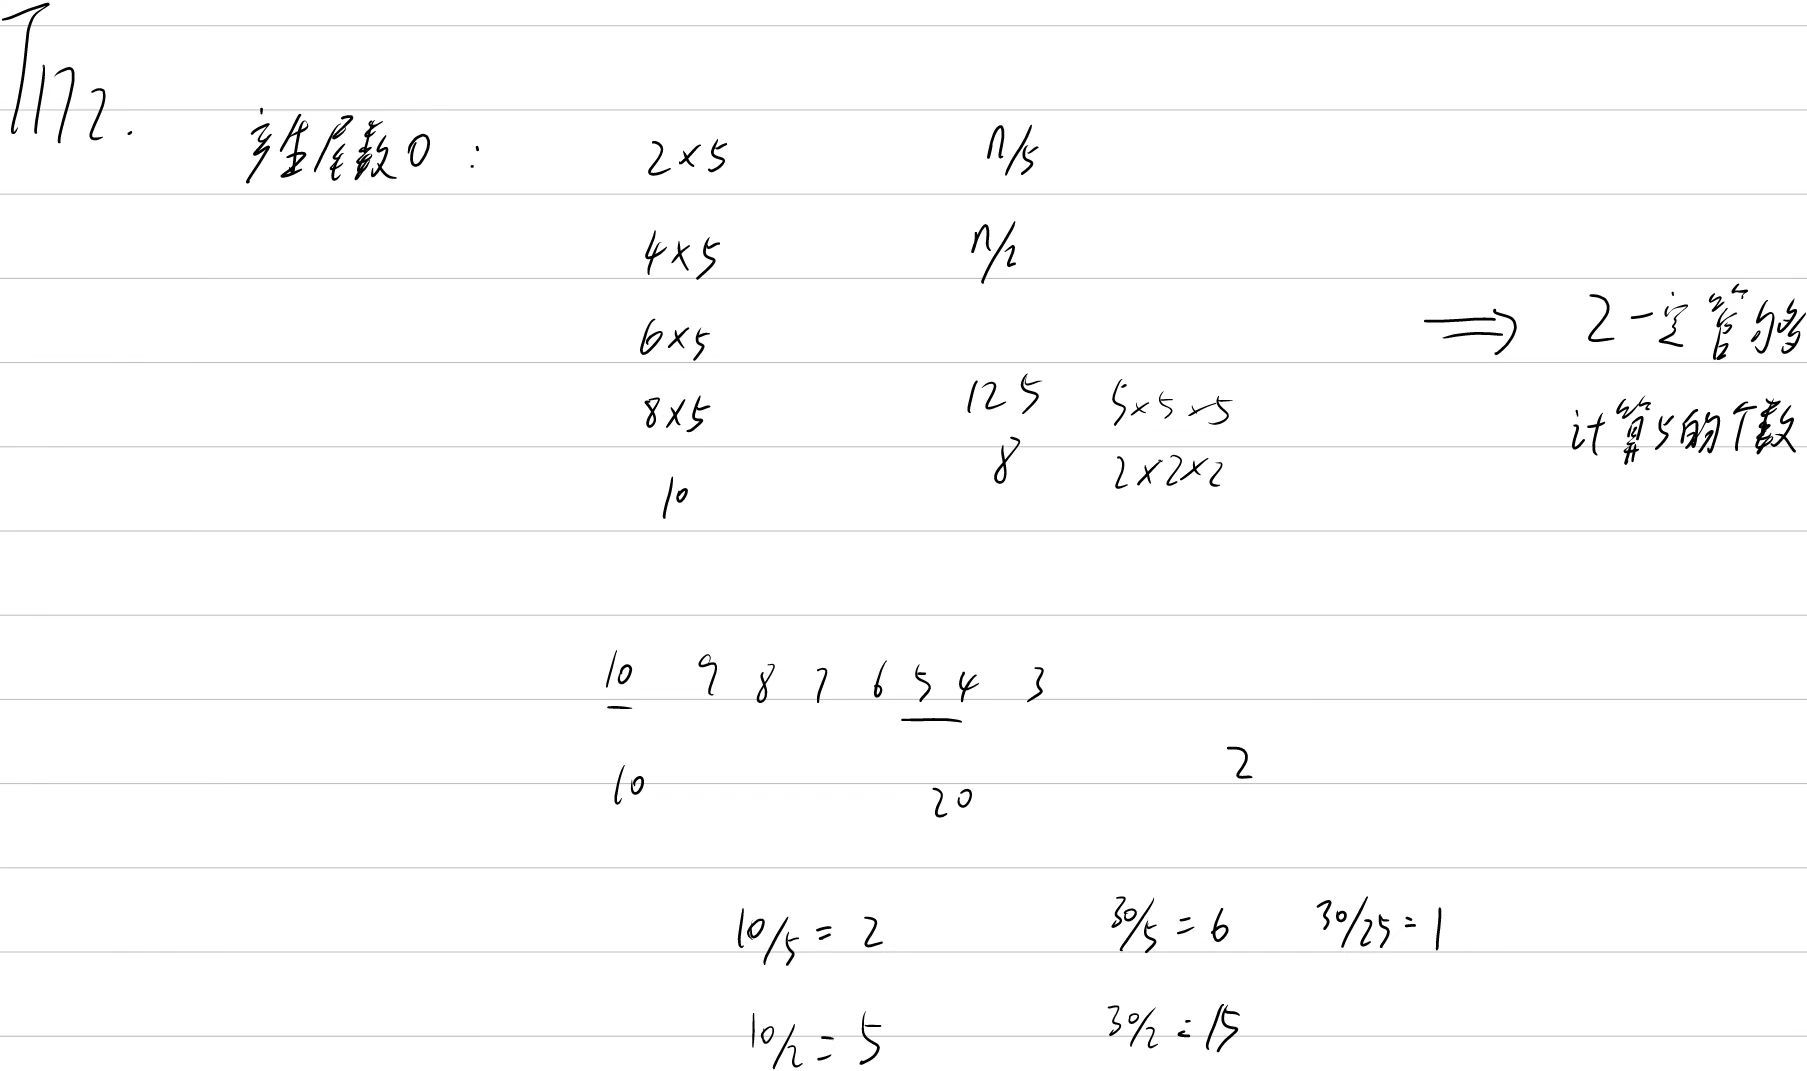 T172.
产生尾数0: 2×5 n/5
4×5 n/2
6×5 ⟹ 2一定管够
8×5 125 5×5×5 计算5的个数
8 2×2×2
10
10 9 8 7 6 5 4 3
2
10 20
10/5 = 2 30/5 = 6 30/25 = 1
10/2 = 5 30/2 = 15